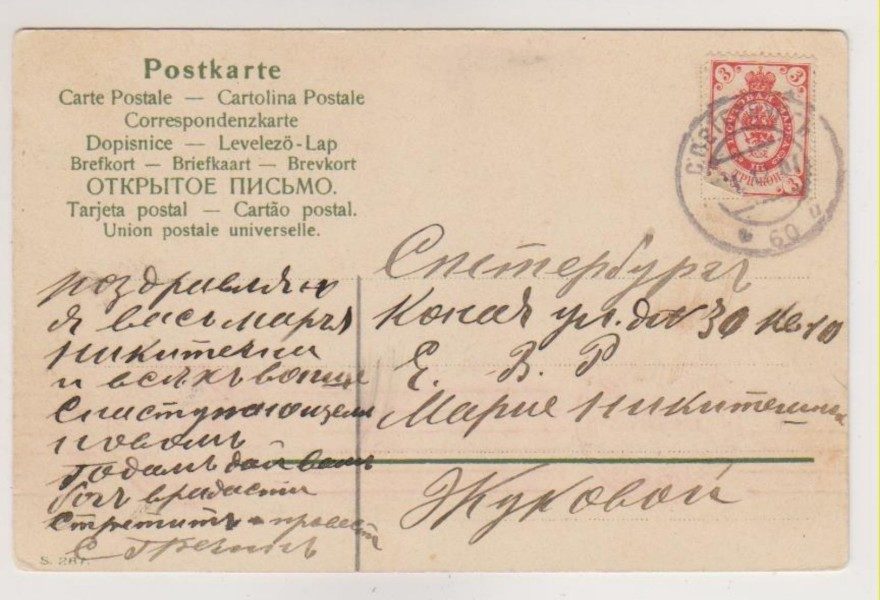 Postkarte
Carte Postale — Cartolina Postale
Correspondenzkarte
Dopisnice — Levelező-Lap
Brefkort — Briefkaart — Brevkort
ОТКРЫТОЕ ПИСЬМО.
Tarjeta postal — Cartão postal.
Union postale universelle.
3 3
3
поздравляю
я васъ марья
никитечна
и всѣхъ вопще
снаступающемъ
новомъ
годамъ дай вамъ
богъ врадасти
стретить и провести
S. 287.
Спетербургъ
Коная ул. д № 30 кв 10
Е. В. Р
Марие Никитечны
Жуковой
60